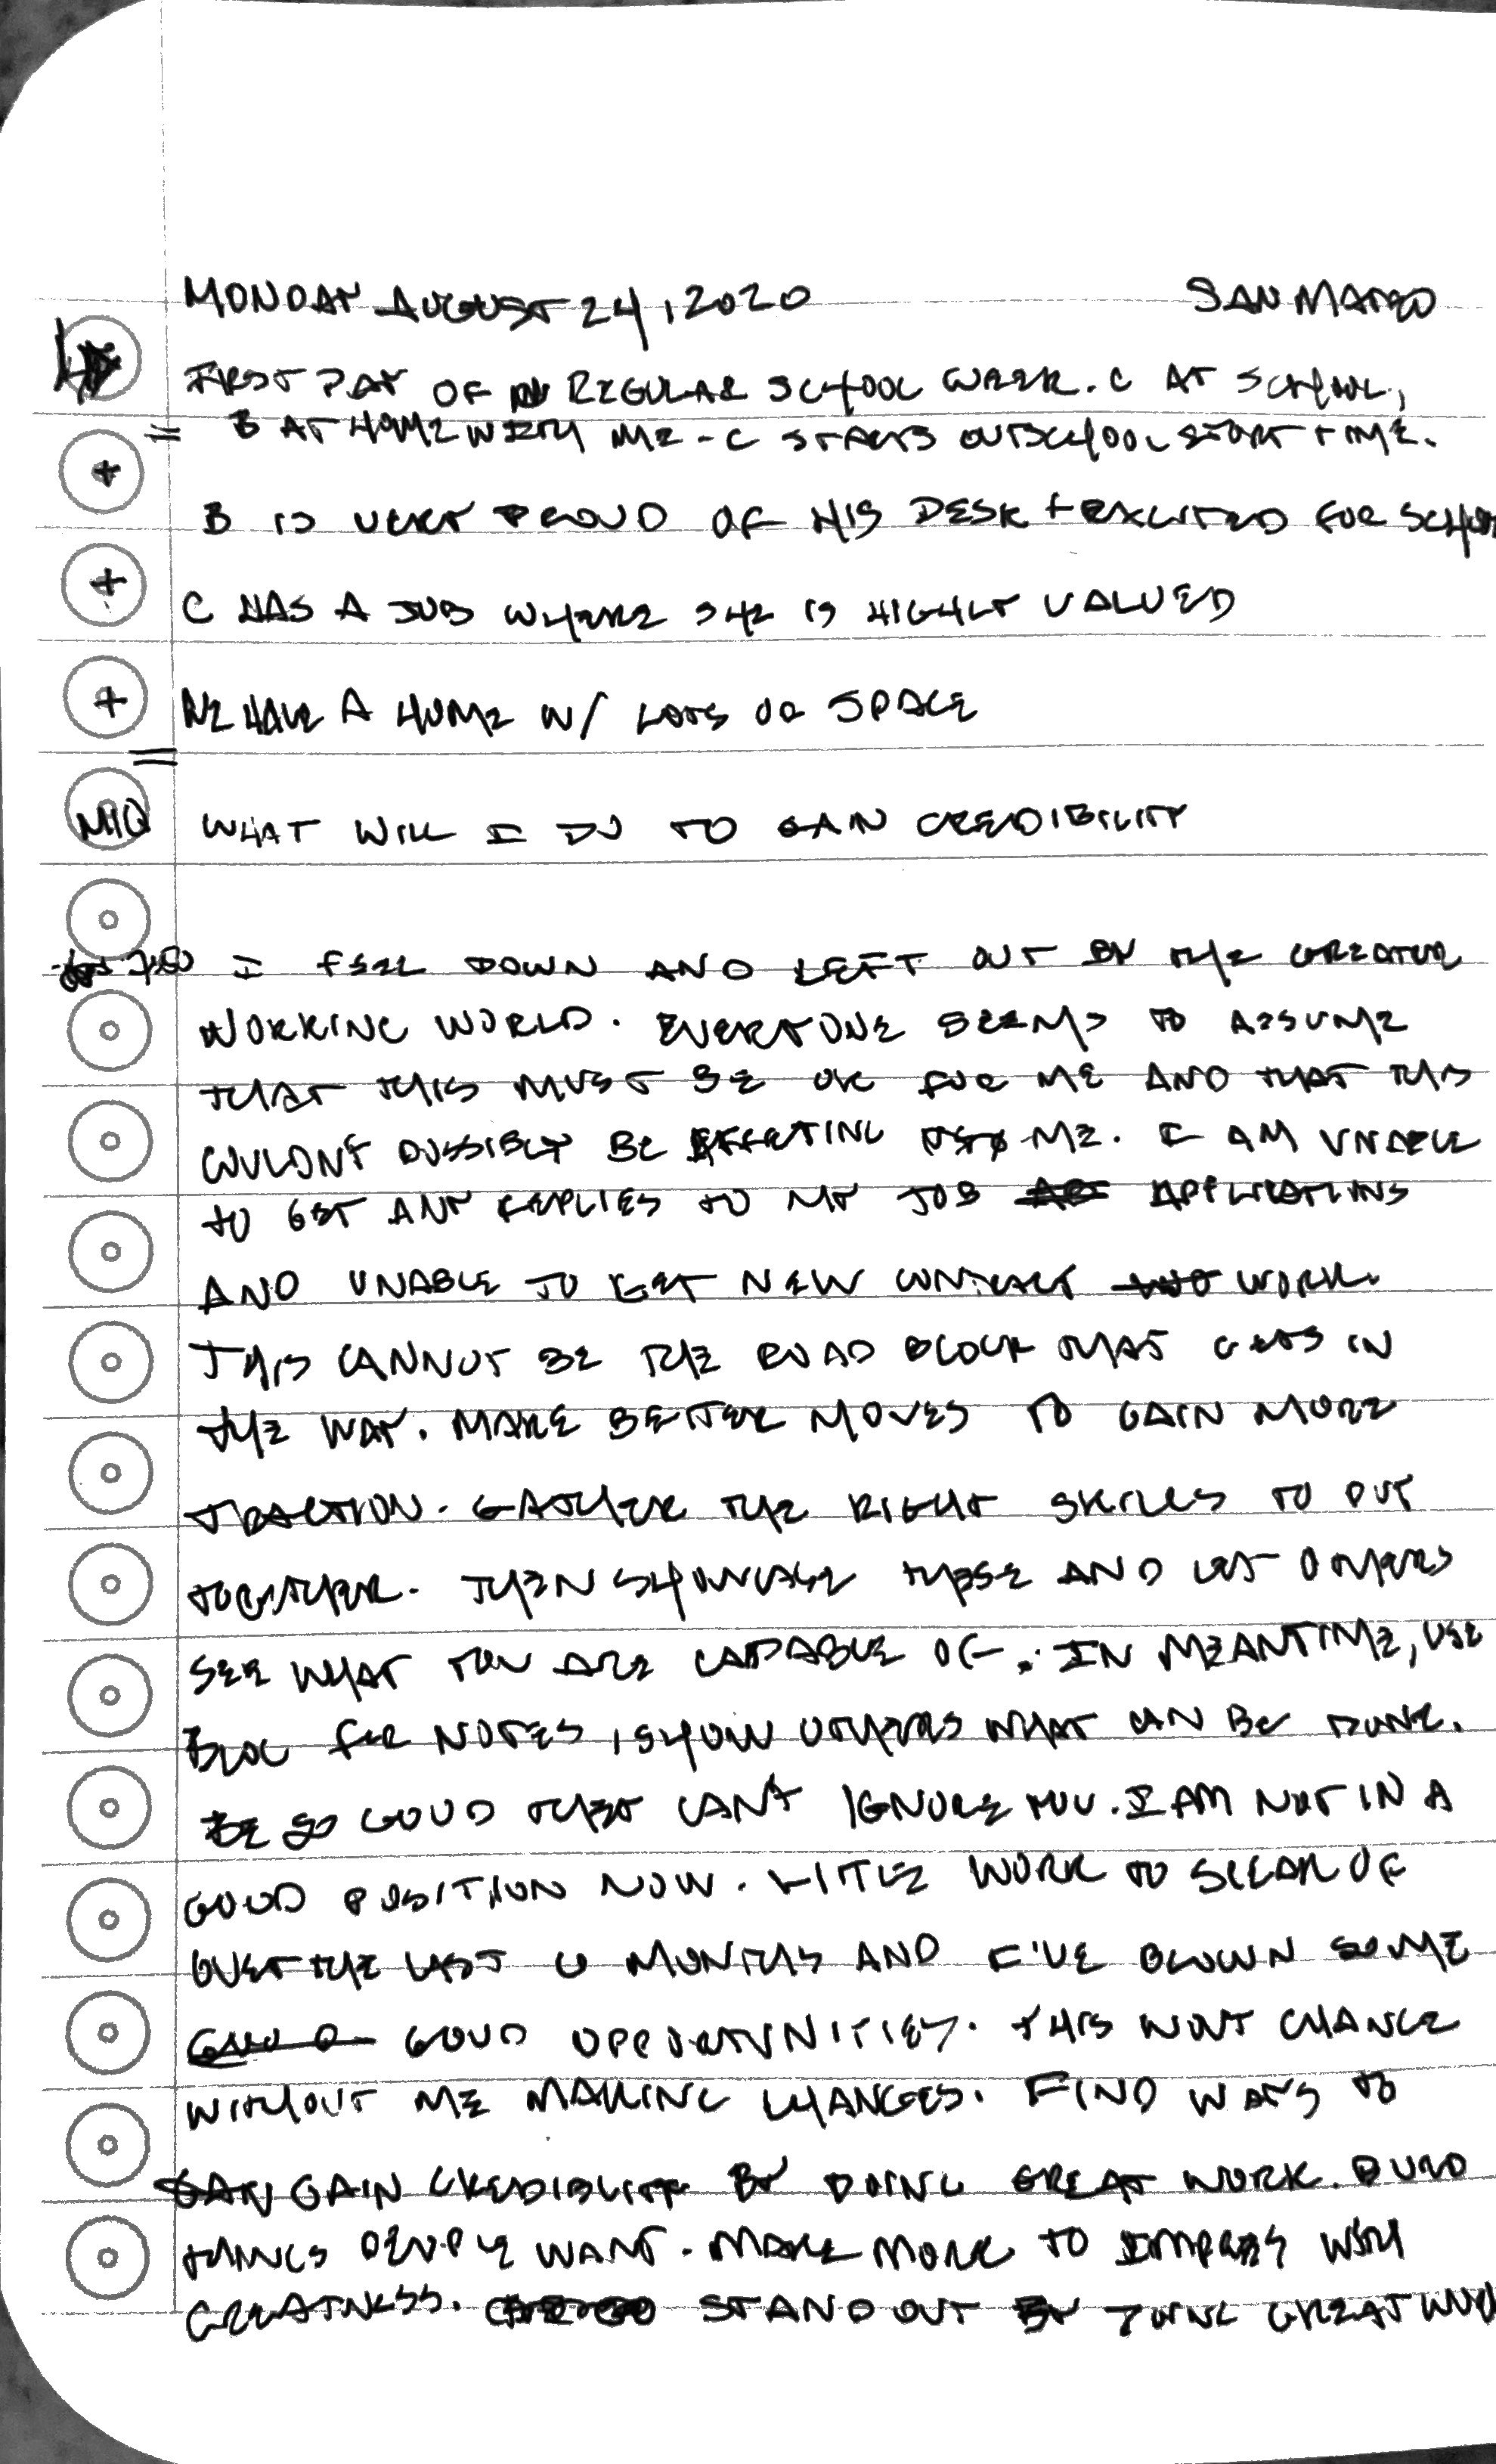 MONDAY AUGUST 24, 2020 SAN MATEO
FIRST DAY OF REGULAR SCHOOL WEEK. C AT SCHOOL,
= B AT HOME WITH ME - C STARTS OUTSCHOOL START TIME.
+ B IS VERY PROUD OF HIS DESK + EXCITED FOR SCHOOL
+ C HAS A JOB WHERE SHE IS HIGHLY VALUED
+ WE HAVE A HOME W/ LOTS OF SPACE
=
MIQ WHAT WILL I DO TO GAIN CREDIBILITY
I FEEL DOWN AND LEFT OUT BY THE GREATER
WORKING WORLD. EVERYONE SEEMS TO ASSUME
THAT THIS MUST BE OK FOR ME AND THAT THIS
COULDN'T POSSIBLY BE EFFECTING ME. I AM UNABLE
TO GET ANY REPLIES TO MY JOB APPLICATIONS
AND UNABLE TO GET NEW CONTRACT WORK.
THIS CANNOT BE THE ROAD BLOCK THAT GETS IN
THE WAY. MAKE BETTER MOVES TO GAIN MORE
TRACTION. GATHER THE RIGHT SKILLS TO PUT
TOGETHER. THEN SHOWCASE THESE AND LET OTHERS
SEE WHAT YOU ARE CAPABLE OF. IN MEANTIME, USE
BLOG FOR NOTES, SHOW OTHERS WHAT CAN BE DONE.
BE SO GOOD THEY CAN'T IGNORE YOU. I AM NOT IN A
GOOD POSITION NOW. LITTLE WORK TO SPEAK OF
OVER THE LAST 6 MONTHS AND I'VE BLOWN SOME
GOOD OPPORTUNITIES. THIS WON'T CHANGE
WITHOUT ME MAKING CHANGES. FIND WAYS TO
GAIN CREDIBLITY BY DOING GREAT WORK. BUILD
THINGS PEOPLE WANT. MAKE MORE TO IMPRESS WITH
GREATNESS. STAND OUT BY DOING GREAT WORK